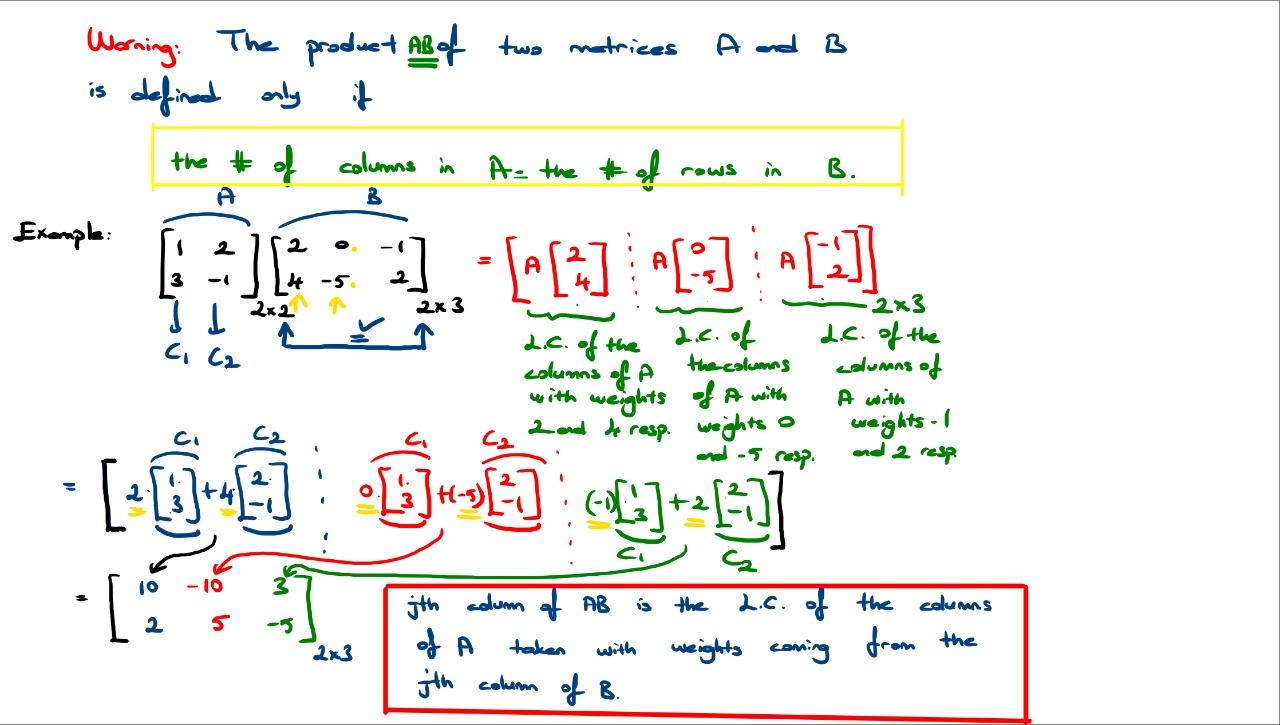 Warning: The product AB of two matrices A and B
is defined only if
the # of columns in A = the # of rows in B.
A B
Example: [1 2 [2 0 -1 = [A [2 A [0 A [-1
3 -1] 4 -5 2] 4] -5] 2]]
2x2 2x3 2x3
C1 C2
L.C. of the columns of A with weights 2 and 4 resp.
L.C. of the columns of A with weights 0 and -5 resp.
L.C. of the columns of A with weights -1 and 2 resp.
C1 C2 C1 C2
= [2 [1 + 4 [2 0 [1 + (-5) [2 (-1) [1 + 2 [2
3] -1] 3] -1] 3] -1]]
C1 C2
= [10 -10 3
2 5 -5]
2x3
jth column of AB is the L.C. of the columns
of A taken with weights coming from the
jth column of B.